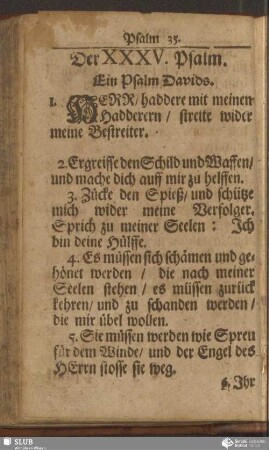 Psalm 35.
Der XXXV. Psalm.
Ein Psalm Davids.
1. HERR/ haddere mit meinen
Hadderern/ streite wider
meine Bestreiter.
2. Ergreiffe den Schild und Waffen/
und mache dich auff mir zu helffen.
3. Zücke den Spieß/ und schütze
mich wider meine Verfolger.
Sprich zu meiner Seelen: Ich
bin deine Hülffe.
4. Es müssen sich schämen und ge-
hönet werden/ die nach meiner
Seelen stehen/ es müssen zurück
kehren/ und zu schanden werden/
die mir übel wollen.
5. Sie müssen werden wie Spreu
für dem Winde/ und der Engel des
HErrn stosse sie weg.
6. Ihr
SLUB